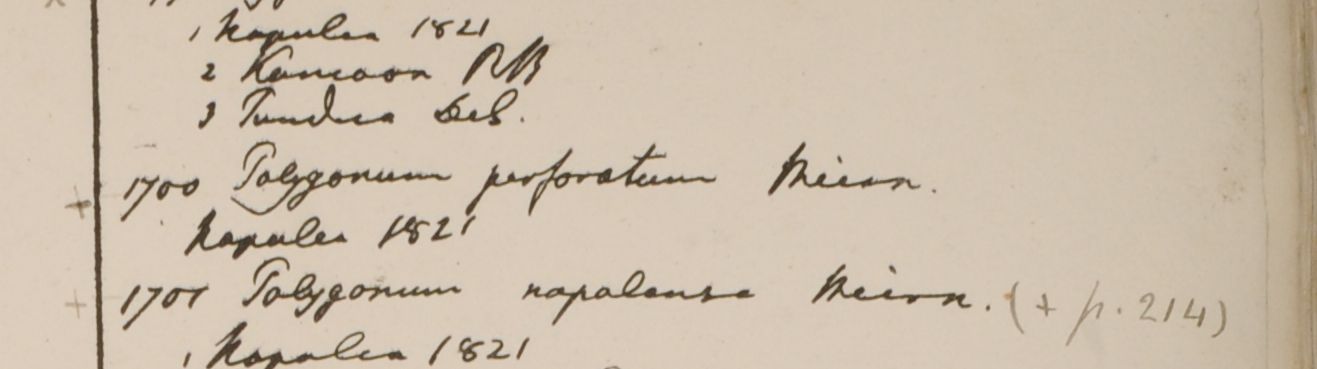 1 Napalia 1821
2 Kamaon RB
3 Tundua Deb.
1700 Polygonum perforatum Meisn.
Napalia 1821
1701 Polygonum napalense Meisn. (+ p. 214)
1 Napalia 1821